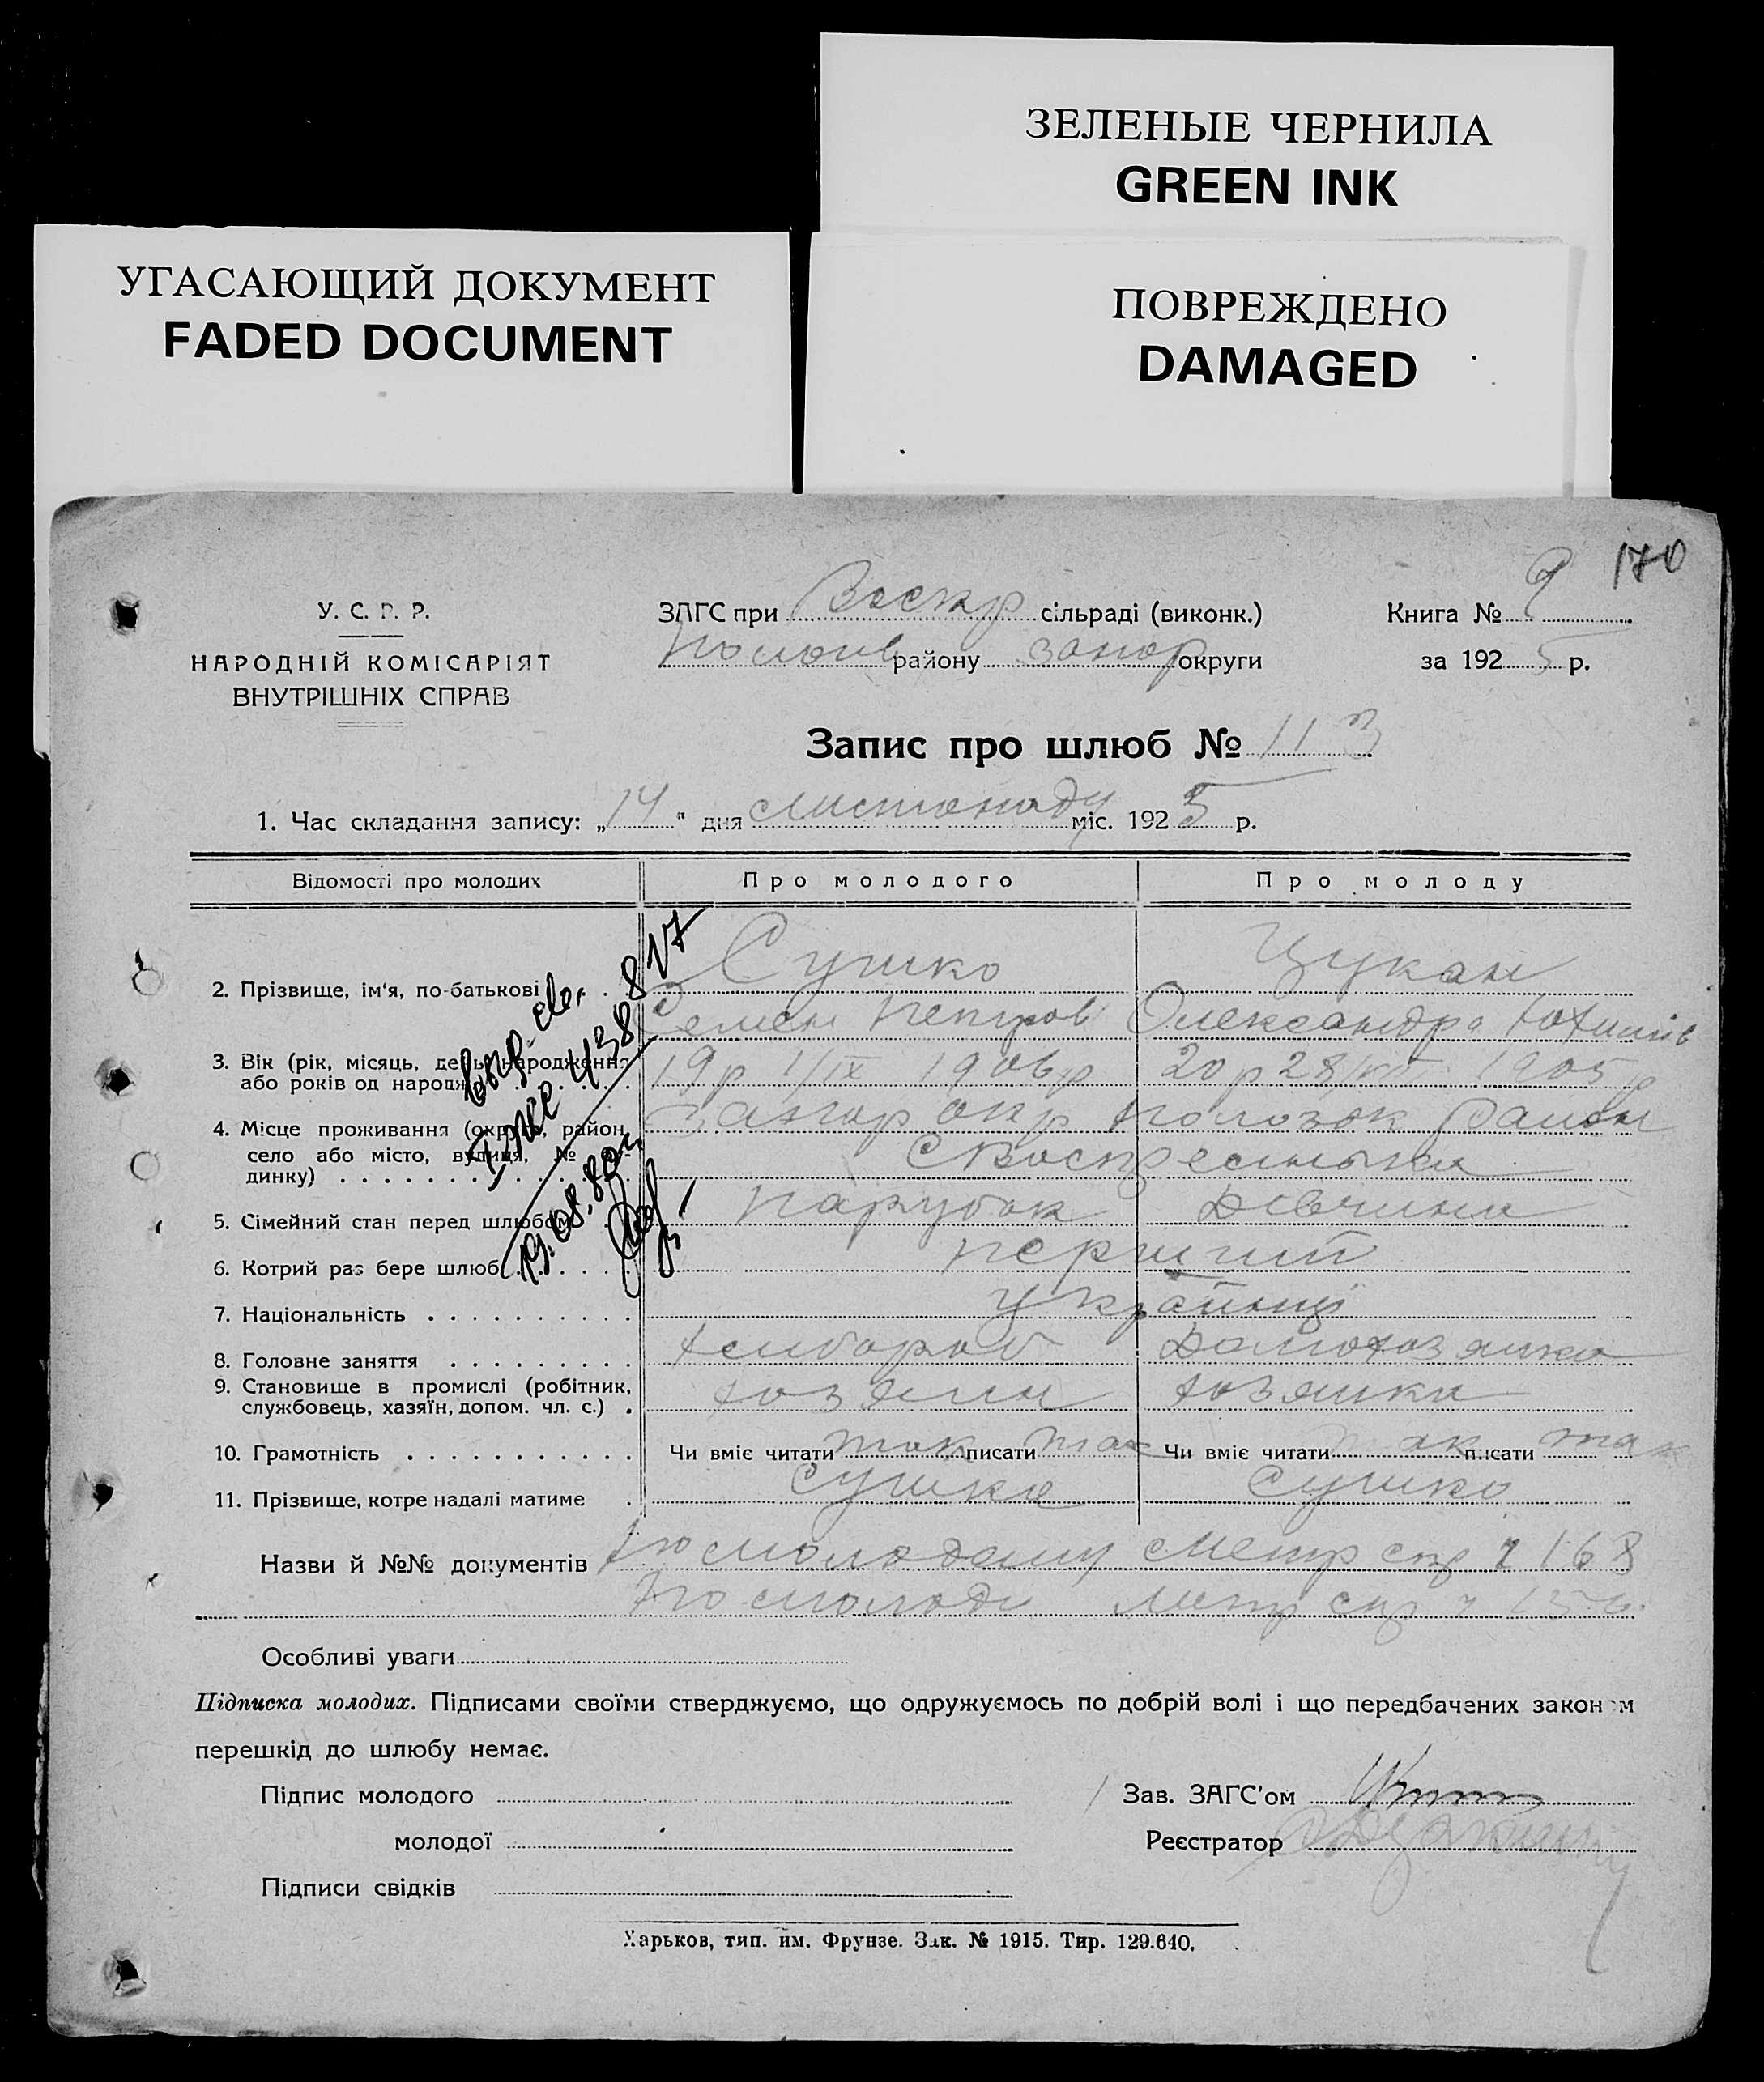 ЗЕЛЕНЫЕ ЧЕРНИЛА
GREEN INK
УГАСАЮЩИЙ ДОКУМЕНТ
FADED DOCUMENT
ПОВРЕЖДЕНО
DAMAGED
170
У. С. Р. Р.
НАРОДНІЙ КОМІСАРІЯТ
ВНУТРІШНІХ СПРАВ
ЗАГС при Воскр сільраді (виконк.)
Пологів району Запор округи
Книга № 9
за 192 5 р.
Запис про шлюб № 113
1. Час складання запису: „ 14 " дня листопаду міс. 192 5 р.
Відомості про молодих Про молодого Про молоду
2. Прізвище, ім'я, по-батькові Сушко Цукан
Семен Петров Олександра Юхимів
3. Вік (рік, місяць, день народження 19 р 1/IX 1906 р 20 р 28/ 1905 р
або років од народж
4. Місце проживання (округа, район, Запор окр Пологок район
село або місто, вулиця, № Воскресенька
динку)
5. Сімейний стан перед шлюбом Парубок Дівчина
6. Котрий раз бере шлюб перший
7. Національність Українці
8. Головне заняття хлібороб Домохозяйка
9. Становище в промислі (робітник, хозяин хозяйка
службовець, хазяїн, допом. чл. с.)
10. Грамотність Чи вміє читати так писати так Чи вміє читати так писати так
11. Прізвище, котре надалі матиме Сушко Сушко
19.08.80
Назви й №№ документів По молодому Метр 168
По молоді Метр
Особливі уваги
Підписка молодих. Підписами своїми стверджуємо, що одружуємось по добрій волі і що передбачених законом
перешкід до шлюбу немає.
Підпис молодого
Зав. ЗАГС'ом
молодої
Реєстратор
Підписи свідків
Харьков, тип. им. Фрунзе. Зак. № 1915. Тир. 129.640.